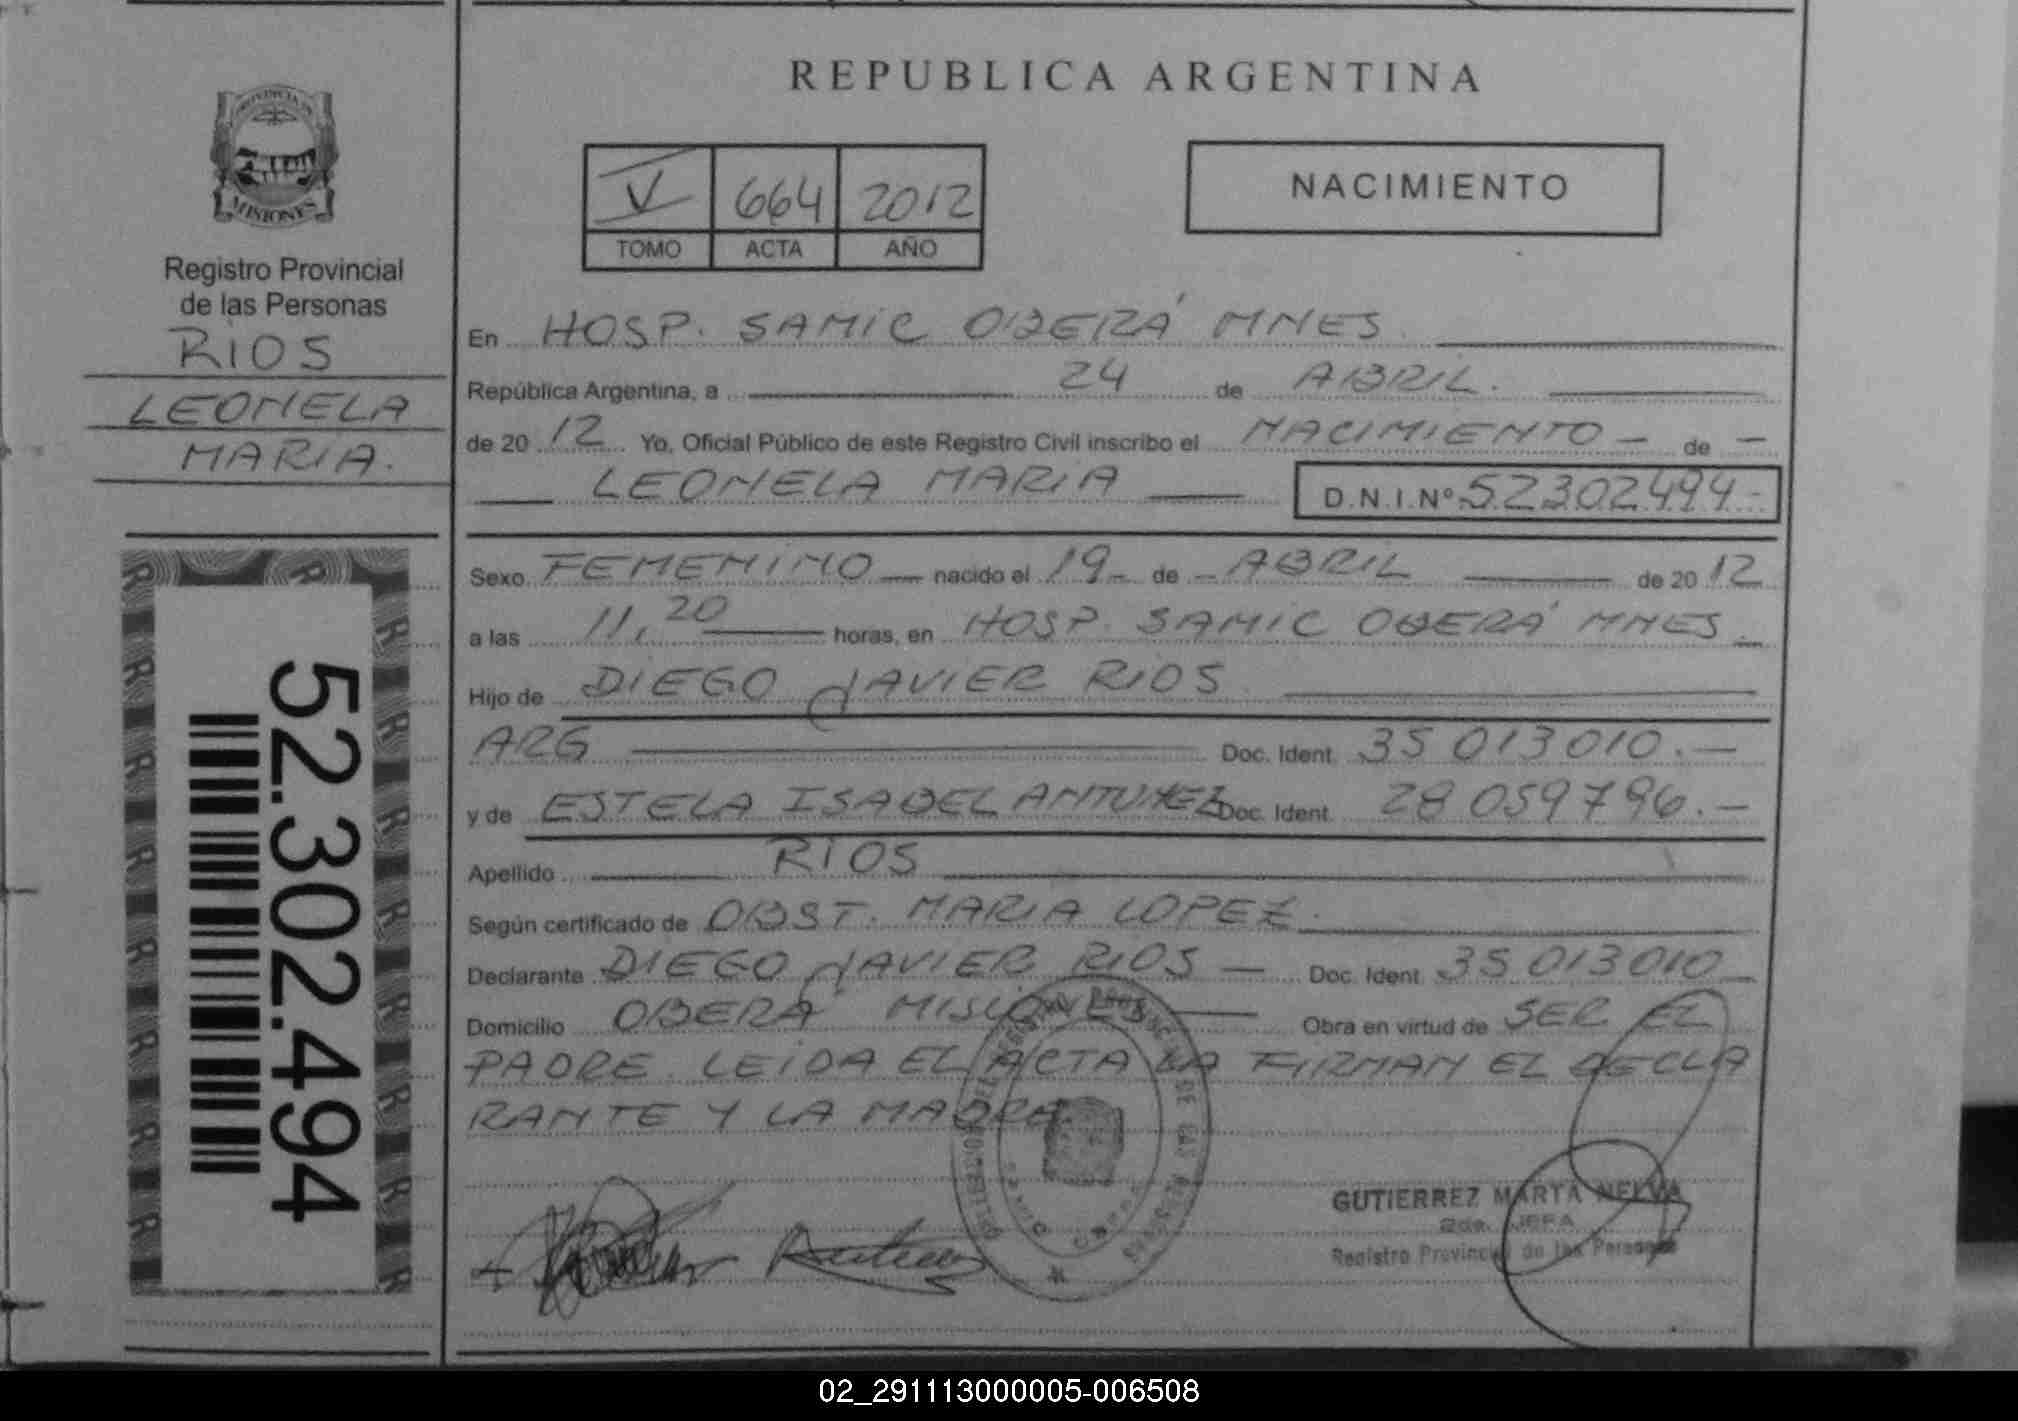 REPUBLICA ARGENTINA
PROVINCIA DE
MISIONES
Registro Provincial
de las Personas
RIOS
LEONELA
MARIA.
52.302.494
V 664 2012
TOMO ACTA AÑO
NACIMIENTO
En HOSP. SAMIC OBERÁ MNES.
República Argentina, a 24 de ABRIL.
de 20 12 Yo, Oficial Público de este Registro Civil inscribo el NACIMIENTO - de -
LEONELA MARIA D.N.I.Nº 52302494.-
Sexo FEMENINO — nacido el 19- de - ABRIL — de 20 12
a las 11,20 — horas, en HOSP. SAMIC OBERÁ MNES —
Hijo de DIEGO JAVIER RIOS.
ARG — Doc. Ident. 35 013 010.—
y de ESTELA ISABEL ANTUNEZ Doc. Ident. 28 059 796.—
Apellido RIOS
Según certificado de OBST. MARIA LOPEZ.
Declarante DIEGO JAVIER RIOS — Doc. Ident. 35 013 010 —
Domicilio OBERA MISIONES — Obra en virtud de SER EL
PADRE. LEIDA EL ACTA LA FIRMAN EL DECLA
RANTE Y LA MADRE.
GUTIERREZ MARTA NELVA
2da. JEFA
Registro Provincial de las Personas
02_291113000005-006508